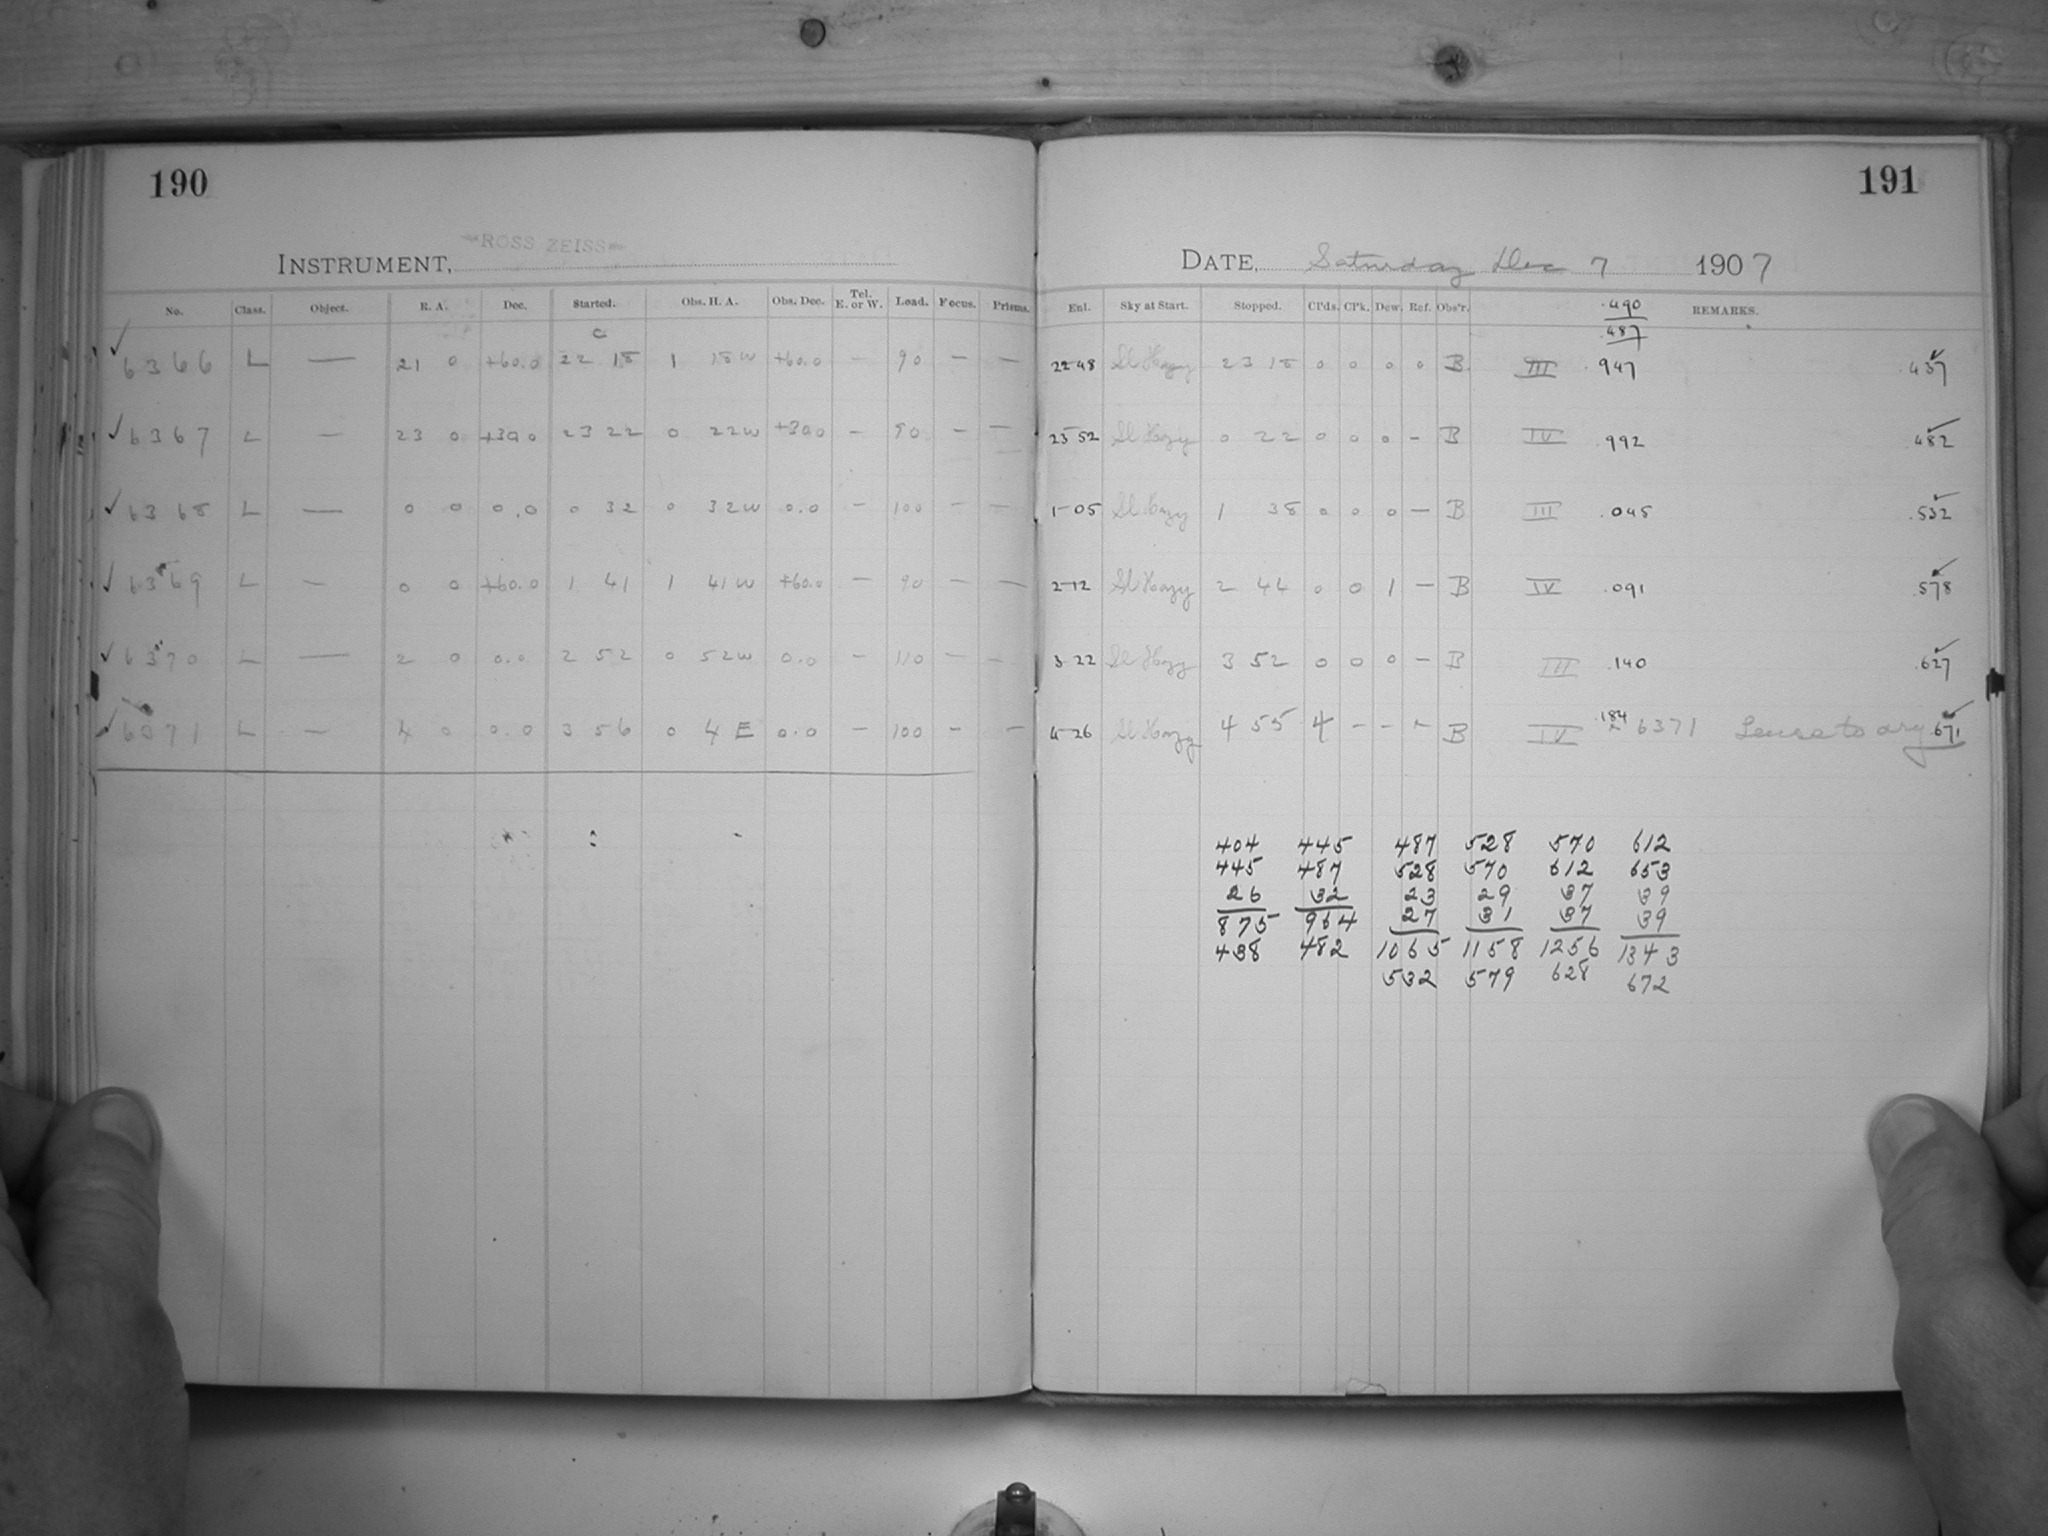 190
INSTRUMENT, ROSS ZEISS
No. Class. Object. R. A. Dec. Started. Obs. H. A. Obs. Dec. Tel. E. or W. Load. Focus. Prisms.
c
✓ 6366 L — 21 0 +60.0 22 18 1 18W +60.0 – 90 – –
✓ 6367 L — 23 0 +30.0 23 22 0 22W +30.0 – 90 – –
✓ 6368 L — 0 0 0.0 0 32 0 32W 0.0 – 100 – –
✓ 6369 L — 0 0 +60.0 1 41 1 41W +60.0 – 90 – –
✓ 6370 L — 2 0 0.0 2 52 0 52W 0.0 – 110 – –
✓ 6371 L — 4 0 0.0 3 56 0 4E 0.0 – 100 – –
191
DATE, Saturday Dec 7 1907
Enl. Sky at Start. Stopped. Cl'ds. Cl'k. Dew. Ref. Obs'r. REMARKS.
.490
.487
22-48 Sl Hazy 23 18 0 0 0 0 B III .947 .437
23 52 Sl Hazy 0 22 0 0 0 – B IV .992 .482
1-05 Sl Hazy 1 38 0 0 0 – B III .045 .532
2-12 Sl Hazy 2 44 0 0 1 – B IV .091 .578
3-22 Sl Hazy 3 52 0 0 0 – B III .140 .627
4-26 Sl Hazy 4 55 4 – – – B IV .184 6371 .671
404 445 487 528 570 612
445 487 528 570 612 653
26 32 23 29 37 39
875 964 27 31 37 39
438 482 1065 1158 1256 1343
532 579 628 672